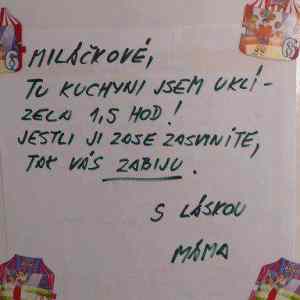 MILÁČKOVÉ,
TU KUCHYNI JSEM UKLÍ-
ZELA 1,5 HOD!
JESTLI JI ZASE ZASVINÍTE,
TAK VÁS ZABIJU.
S LÁSKOU
MÁMA